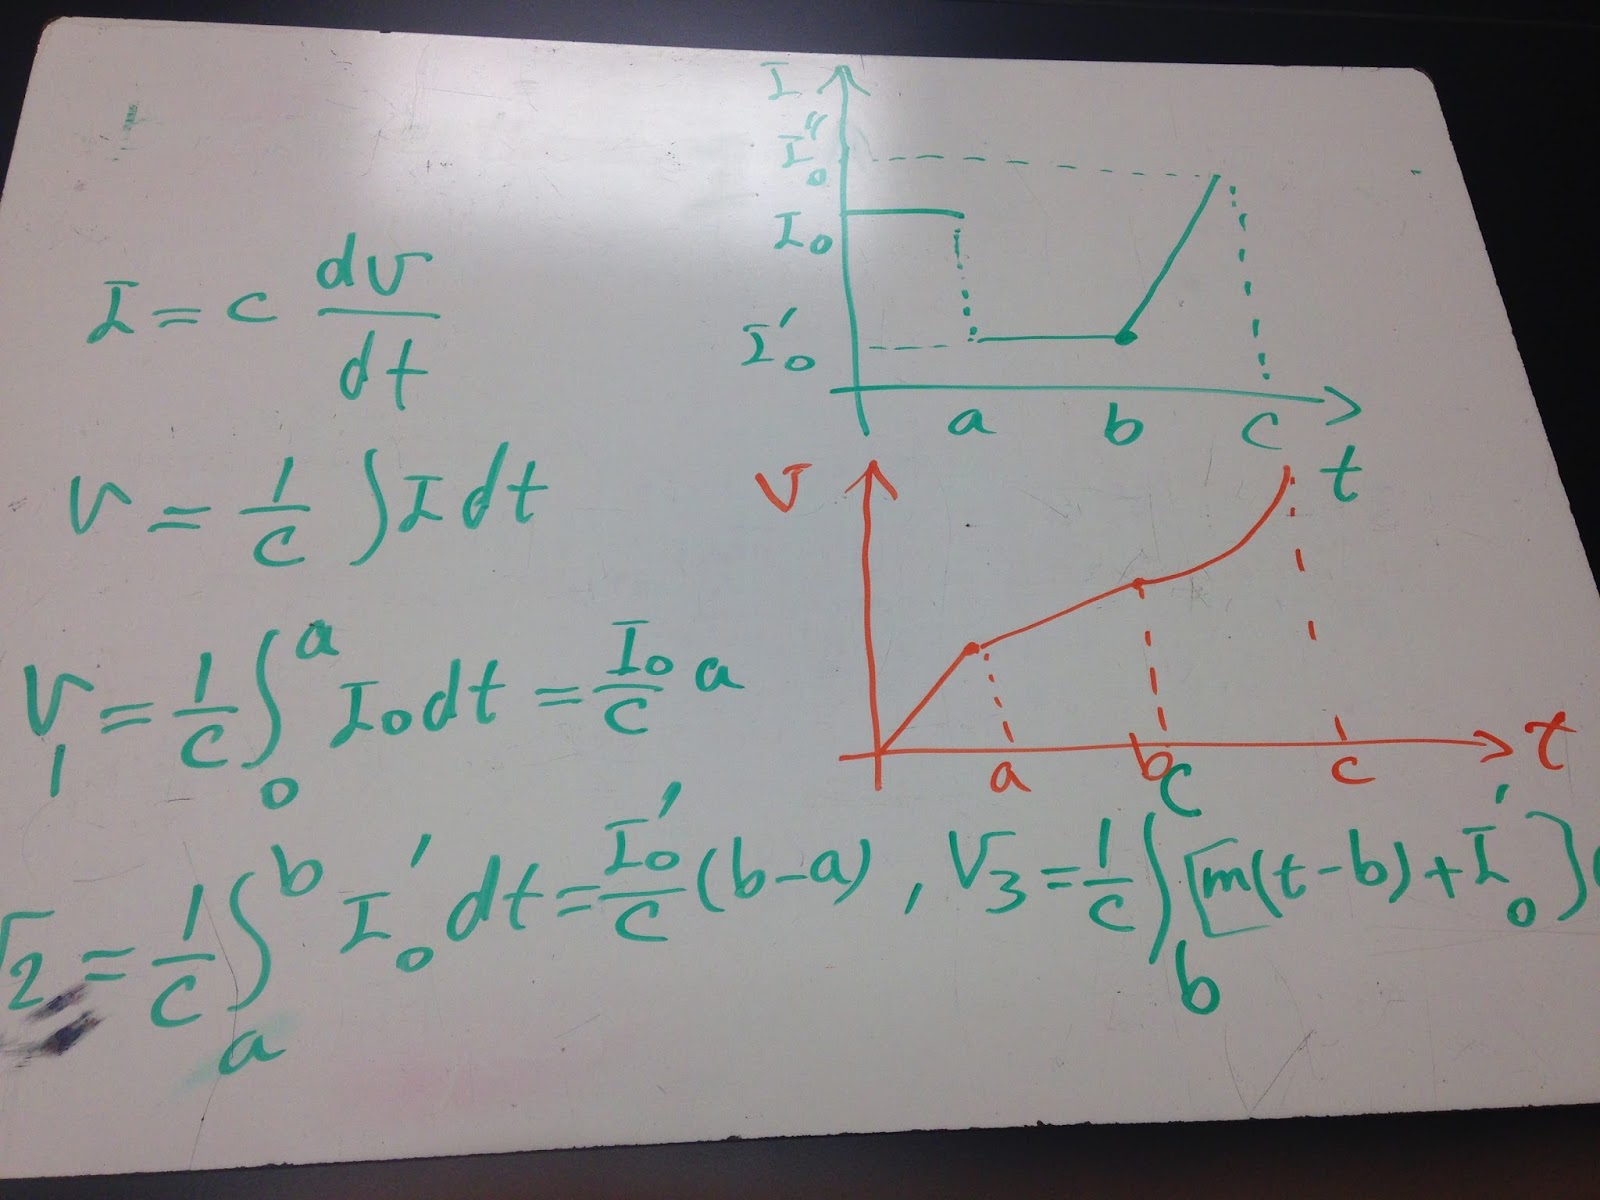 I = c dv/dt
v = 1/c ∫ I dt
V₁ = 1/c ∫₀ᵃ I₀ dt = I₀/c a
V₂ = 1/c ∫ₐᵇ I₀' dt = I₀'/c (b-a) , V₃ = 1/c ∫_b^c [m(t-b) + I₀'](
I
I₀"
I₀
I₀'
a b c
t
V
a b c
t